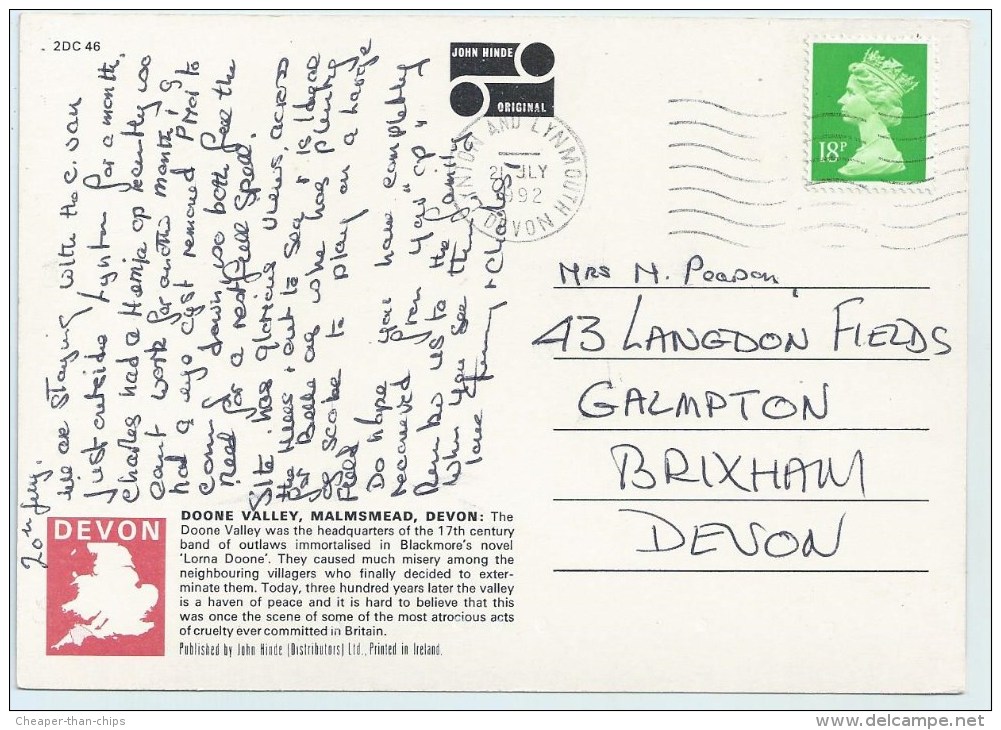 2DC 46
JOHN HINDE
ORIGINAL
18P
LYNTON AND LYNMOUTH
21 JLY
1992
DEVON
20th July.
We are staying with the c. van
just outside Lynton for a month.
Charles had a Hernia op recently so
cant work for another month, &
had a eye cyst removed prior to
coming down, so both feel the
need for a restfull spell.
Site has glorious views, across
the Hills & out to Sea & is ideal
for Belle as who has plenty
of scope to play on a large
Field
Do hope you have completly
recovered from your "op"
Rember us to the family
when you see them.
love & Charles
Mrs M. Pearson,
43 LANGDON FIELDS
GALMPTON
BRIXHAM
DEVON
DEVON
DOONE VALLEY, MALMSMEAD, DEVON: The
Doone Valley was the headquarters of the 17th century
band of outlaws immortalised in Blackmore's novel
'Lorna Doone'. They caused much misery among the
neighbouring villagers who finally decided to exter-
minate them. Today, three hundred years later the valley
is a haven of peace and it is hard to believe that this
was once the scene of some of the most atrocious acts
of cruelty ever committed in Britain.
Published by John Hinde (Distributors) Ltd., Printed in Ireland.
Cheaper-than-chips
delcampe.net